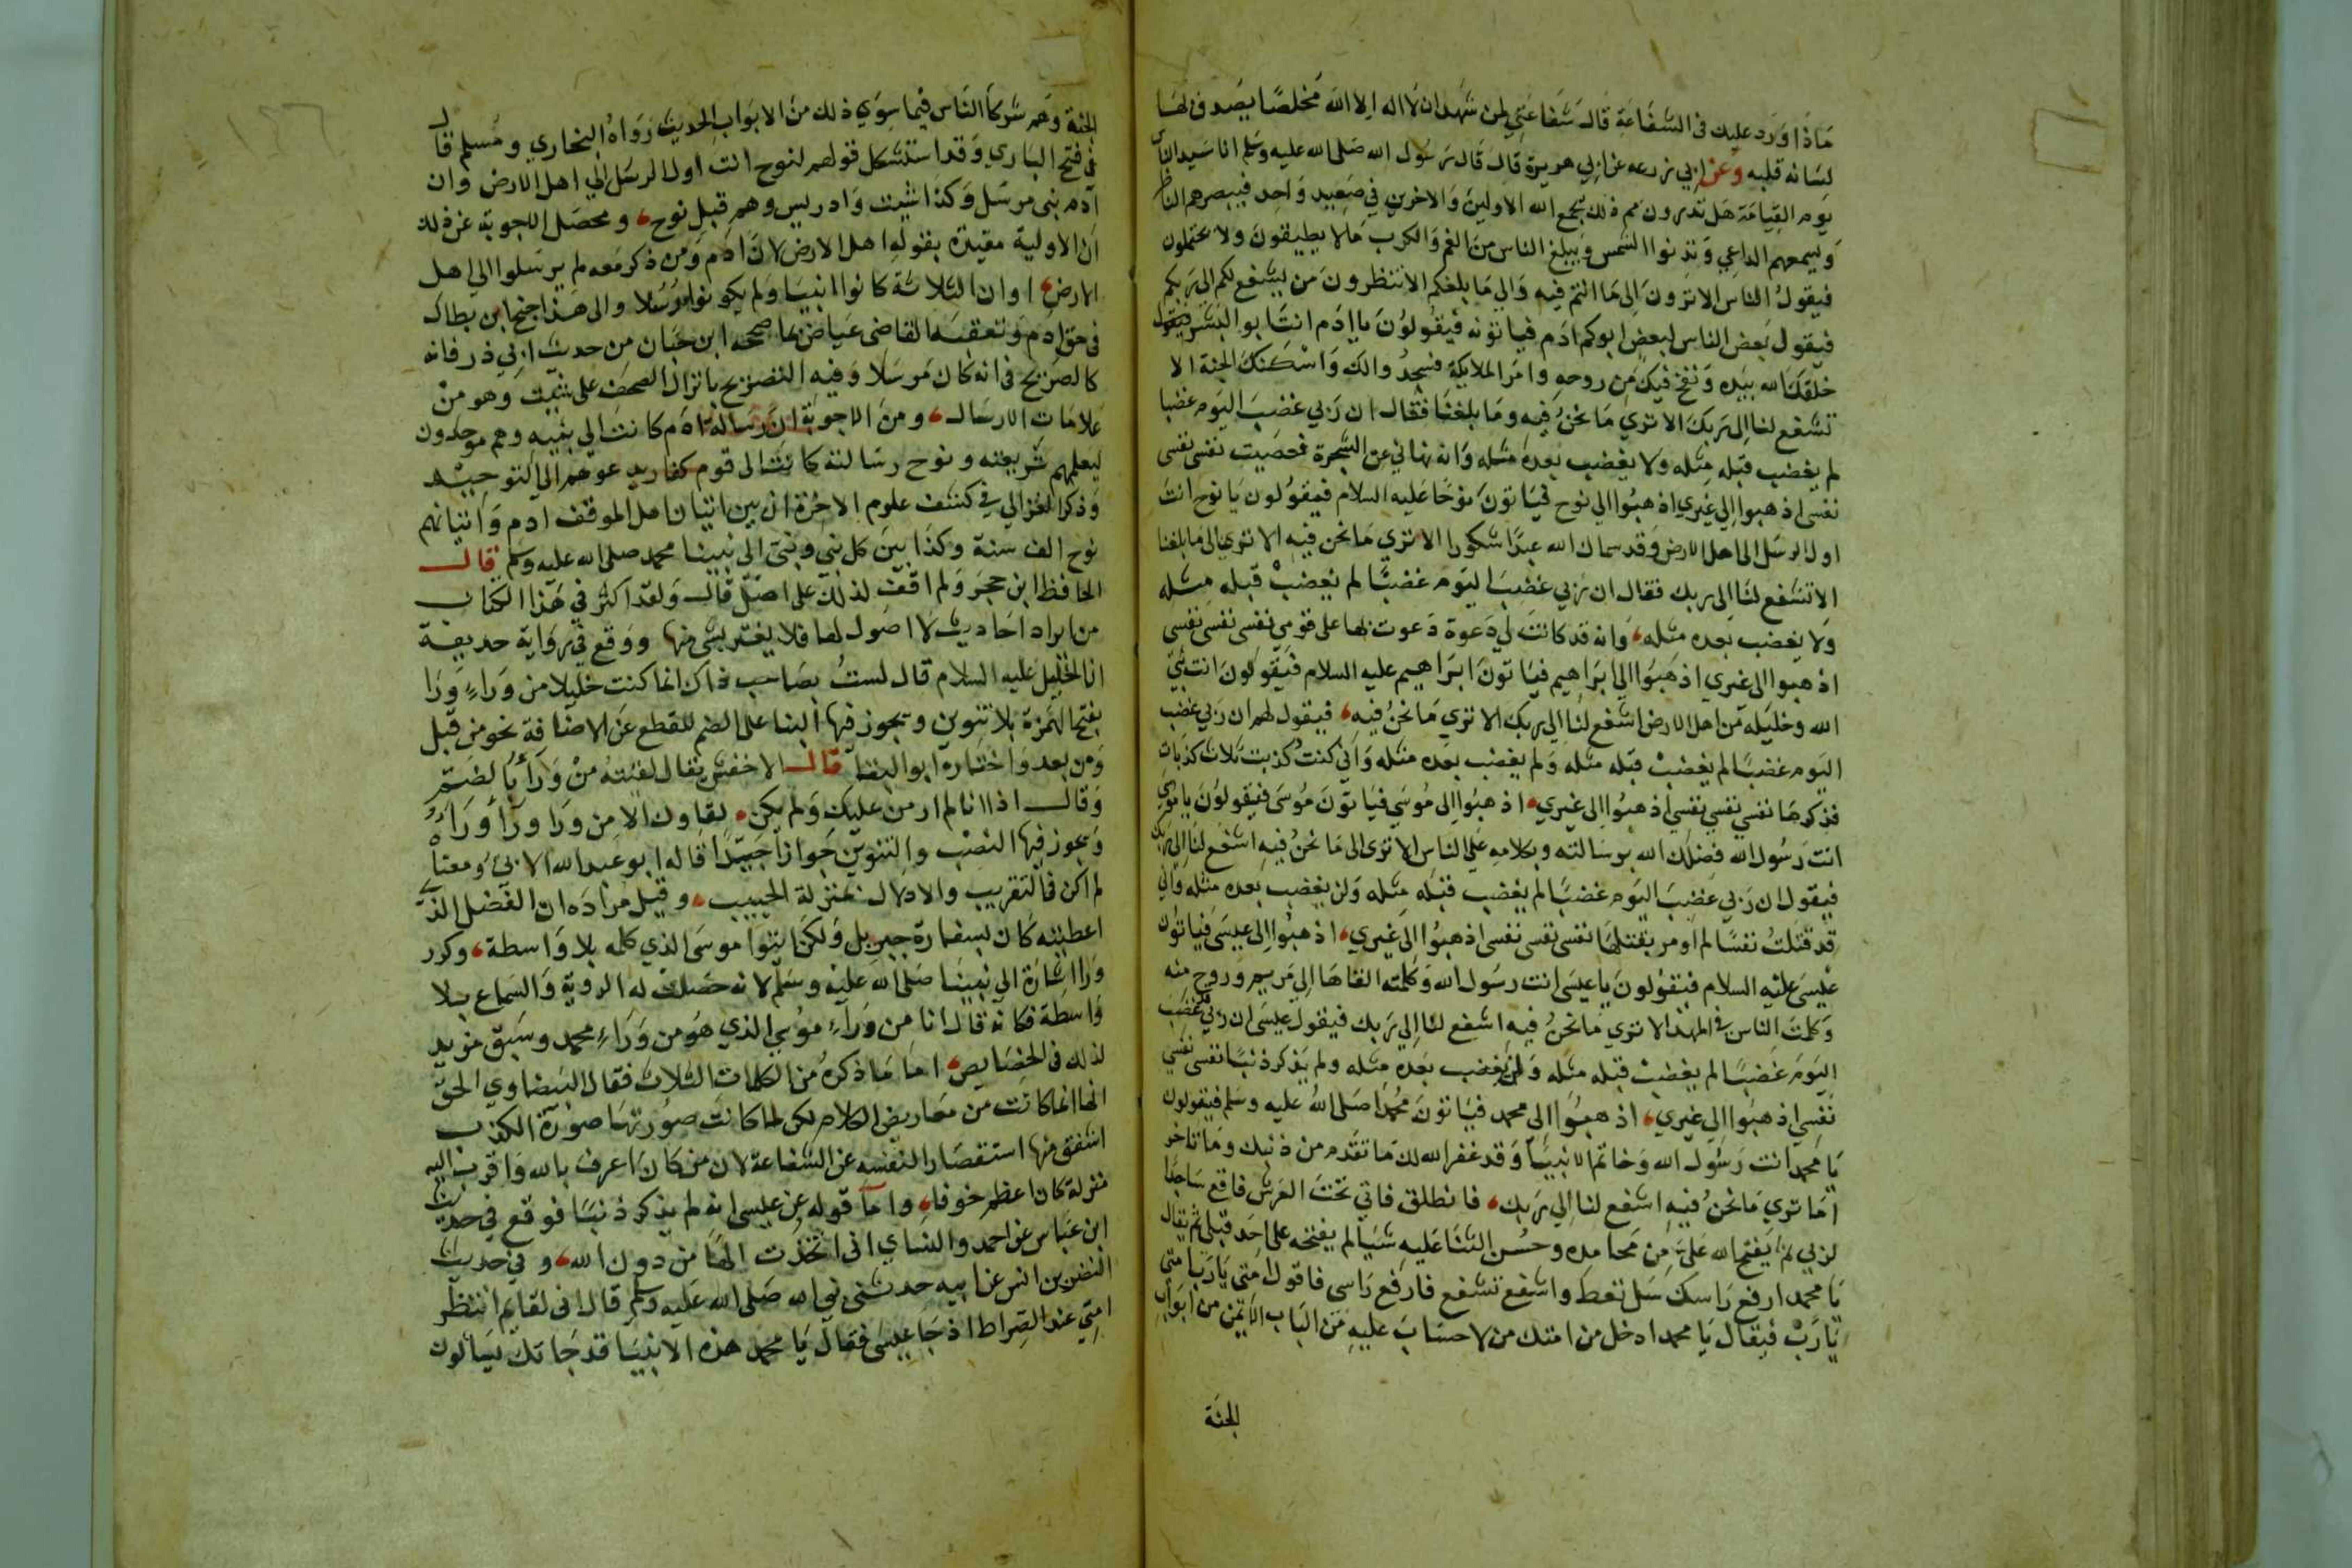 ماذا ورد عليك في الشفاعة قال شفاعتي لمن شهد ان لا اله الا الله مخلصا يصدق لها
لسانه قلبه وعن ابي زرعه عن ابي هريرة قال قال رسول الله صلى الله عليه وسلم انا سيد الناس
يوم القيامة هل تدرون مم ذلك يجمع الله الاولين والاخرين في صعيد واحد فيبصرهم الناظر
ويسمعهم الداعي وتدنوا الشمس ويبلغ الناس من الغم والكرب مالا يطيقون ولا يحتملون
فيقول الناس الا ترون الى ما انتم فيه والي ما بلغكم الا تنظرون من يشفع لكم الى ربكم
فيقول بعض الناس لبعض ابوكم ادم فياتونه فيقولون يا ادم انت ابو البشر فيقول
خلقك الله بيده ونفخ فيك من روحه وامر الملايكة فسجدوا لك واسكنك الجنة الا
تشفع لنا الى ربك الا تري ما نحن فيه وما بلغنا فقال ان ربي غضب اليوم غضبا
لم يغضب قبله مثله ولا يغضب بعده مثله وانه نهاني عن الشجرة فعصيت نفسي نفسي
نفسي اذهبوا الي غيري اذهبوا الي نوح فياتون نوحا عليه السلام فيقولون يا نوح انت
اول الرسل الى اهل الارض وقد سماك الله عبدا شكورا الا تري ما نحن فيه الا تري الى ما بلغنا
الا تشفع لنا الى ربك فقال ان ربي غضب اليوم غضبا لم يغضب قبله مثله
ولا يغضب بعده مثله، وانه قد كانت لي دعوة دعوت بها على قومي نفسي نفسي نفسي
اذهبوا الى غيري اذهبوا الي ابراهيم فياتون ابراهيم عليه السلام فيقولون انت نبي
الله وخليله من اهل الارض اشفع لنا الي ربك الا تري ما نحن فيه، فيقول لهم ان ربي غضب
اليوم غضبا لم يغضب قبله مثله ولم يغضب بعده مثله واني كنت كذبت ثلاث كذبات
فذكرها نفسي نفسي نفسي اذهبوا الي غيري، اذهبوا الى موسي فياتون موسى فيقولون يا موسي
انت رسول الله فضلك الله برسالته وبكلامه على الناس الا تري الى ما نحن فيه اشفع لنا الى ربك
فيقول ان ربي غضب اليوم غضبا لم يغضب قبله مثله ولن يغضب بعده مثله واني
قد قتلت نفسا لم اومر بقتلها نفسي نفسي نفسي اذهبوا الى غيري، اذهبوا الى عيسى فياتون
عيسى عليه السلام فيقولون يا عيسى انت رسول الله وكلمته القاها الي مريم وروح منه
وكلمت الناس في المهد الا تري ما نحن فيه اشفع لنا الي ربك فيقول عيسى ان ربي قد غضب
اليوم غضبا لم يغضب قبله مثله ولن يغضب بعده مثله ولم يذكر ذنبا نفسي نفسي
نفسي اذهبوا الي غيري، اذهبوا الى محمد فياتون محمدا صلى الله عليه وسلم فيقولون
يا محمد انت رسول الله وخاتم الانبيا وقد غفر الله لك ما تقدم من ذنبك وما تاخر
اما تري ما نحن فيه اشفع لنا الي ربك، فانطلق فاتي تحت العرش فاقع ساجدا
لربي ثم يفتح الله علي من محامده وحسن الثنا عليه شيا لم يفتحه على احد قبلي ثم يقال
يا محمد ارفع راسك سل تعط واشفع تشفع فارفع راسي فاقول امتي يا رب امتي
يا رب فيقال يا محمد ادخل من امتك من لا حساب عليه من الباب الايمن من ابواب
الجنة
الجنة وهم شركا الناس فيما سوي ذلك من الابواب الحديث رواه البخاري ومسلم قال
في فتح الباري وقد استشكل قولهم لنوح انت اول الرسل الي اهل الارض وان
آدم نبي مرسل وكذا شيث وادريس وهم قبل نوح، ومحصل الاجوبة عن ذلك
ان الاولية مقيدة بقوله اهل الارض لان ادم ومن ذكر معه لم يرسلوا الي اهل
الارض، او ان الثلاثة كانوا انبيا ولم يكونوا رسلا والى هذا جنح ابن بطال
في حق ادم وتعقبه القاضي عياض بما صححه ابن حبان من حديث ابي ذر فانه
كالصريح في انه كان مرسلا وفيه التصريح بانزال الصحف على شيث وهو من
علامات الارسال، ومن الاجوبة ان رسالة ادم كانت الي بنيه وهم موحدون
ليعلمهم شريعته ونوح رسالته كانت الى قوم كفار يدعوهم الي التوحيد
وذكر الغزالي في كشف علوم الاخرة ان بين اتيان اهل الموقف ادم واتيانهم
نوح الف سنة وكذا بين كل نبي ونبي الى نبينا محمد صلى الله عليه وسلم قال
الحافظ ابن حجر ولم اقف لذلك على اصل قال ولقد اكثر في هذا الكتاب
من ايراد احاديث لا اصول لها فلا يغتر بشي منها ووقع في رواية حديفة
ان الخليل عليه السلام قال لست بصاحب ذاك انما كنت خليلا من وراء ورا
بفتح الهمزة بلا تنوين ويجوز فيها البنا على الضم للقطع عن الاضافة نحو من قبل
ومن بعد واختاره ابو البقا قال الاخفش يقال لقيته من ورآ بالضم
وقال اذا انا لم اومن عليك ولم يكن، لقاوك الا من ورا ورآ ورآ
ويجوز فيها النصب والتنوين جوازا جيدا قاله ابو عبد الله الابي ومعناه
لم اكن في التقريب والادلال بمنزلة الحبيب، وقيل مراده ان الفضل الذي
اعطيته كان بسفارة جبريل ولكن ايتوا موسى الذي كلمه بلا واسطة، وكرر
ورا اشارة الي نبينا صلى الله عليه وسلم لانه حصلت له الروية والسماع بلا
واسطة فكانه قال انا من وراء موسي الذي هو من وراء محمد وسبق مزيد
لذلك في الخصايص، اما ما ذكره من الكلمات الثلاث فقال البيضاوي الحق
انها انما كانت من معاريض الكلام لكن لما كانت صورتها صورة الكذب
اشفق منها استقصارا لنفسه عن الشفاعة لان من كان اعرف بالله واقرب اليه
منزلة كان اعظم خوفا، واما قوله عن عيسى انه لم يذكر ذنبا فوقع في حديث
ابن عباس عن احمد والنساي اني اتخذت الها من دون الله، وفي حديث
النضر بن انس عن ابيه حدثني نبي الله صلى الله عليه وسلم قال اني لقايم انتظر
امتي عند الصراط اذ جا عيسى فقال يا محمد هذه الانبيا قد جاتك يسالون